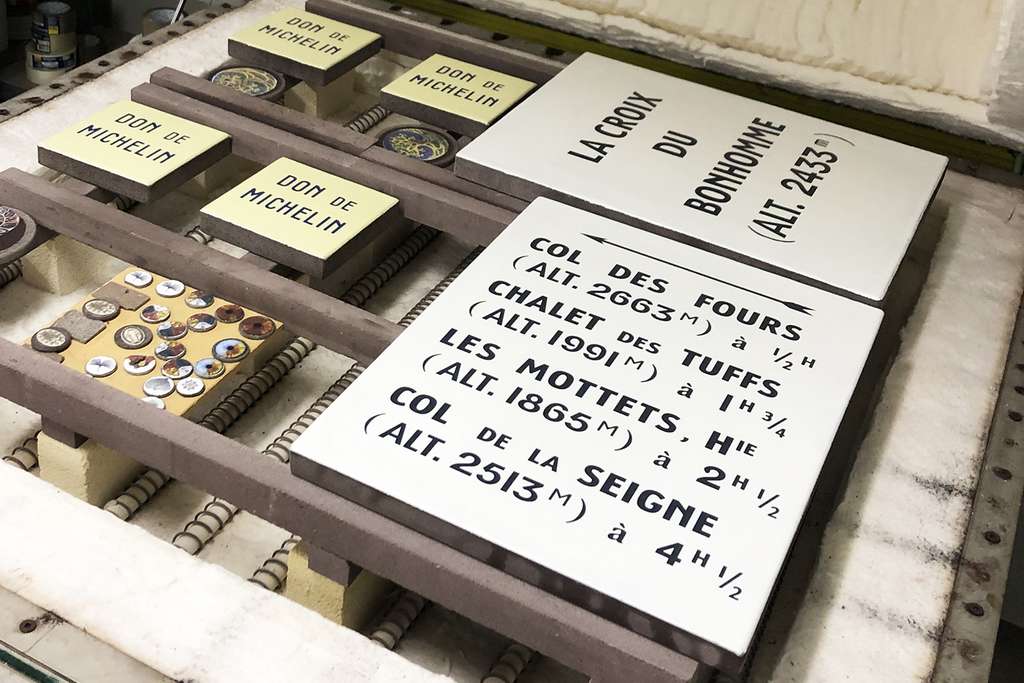 DON DE
MICHELIN
DON DE
MICHELIN
DON DE
MICHELIN
DON DE
MICHELIN
LA CROIX
DU
BONHOMME
(ALT. 2433m)
COL DES FOURS
(ALT. 2663M) à 1/2H
CHALET DES TUFFS
(ALT. 1991M) à 1H 3/4
LES MOTTETS, HIE
(ALT. 1865M) à 2H 1/2
COL DE LA SEIGNE
(ALT. 2513M) à 4H 1/2